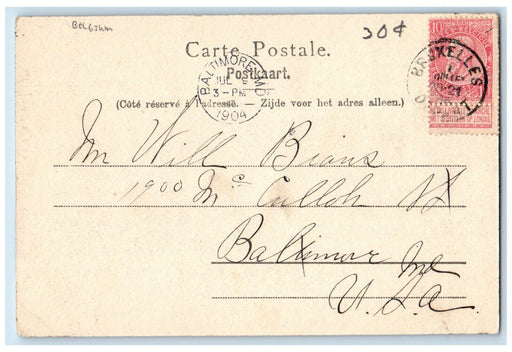 BELGIUM
20¢
Carte Postale.
Postkaart.
(Côté réservé à l'adresse. — Zijde voor het adres alleen.)
BALTIMORE, MD
JUL 9
3-PM
1904
BRUXELLES
1
10
Mr Will Bians
1900 Mc Culloh St
Baltimore Md
U.S.a.